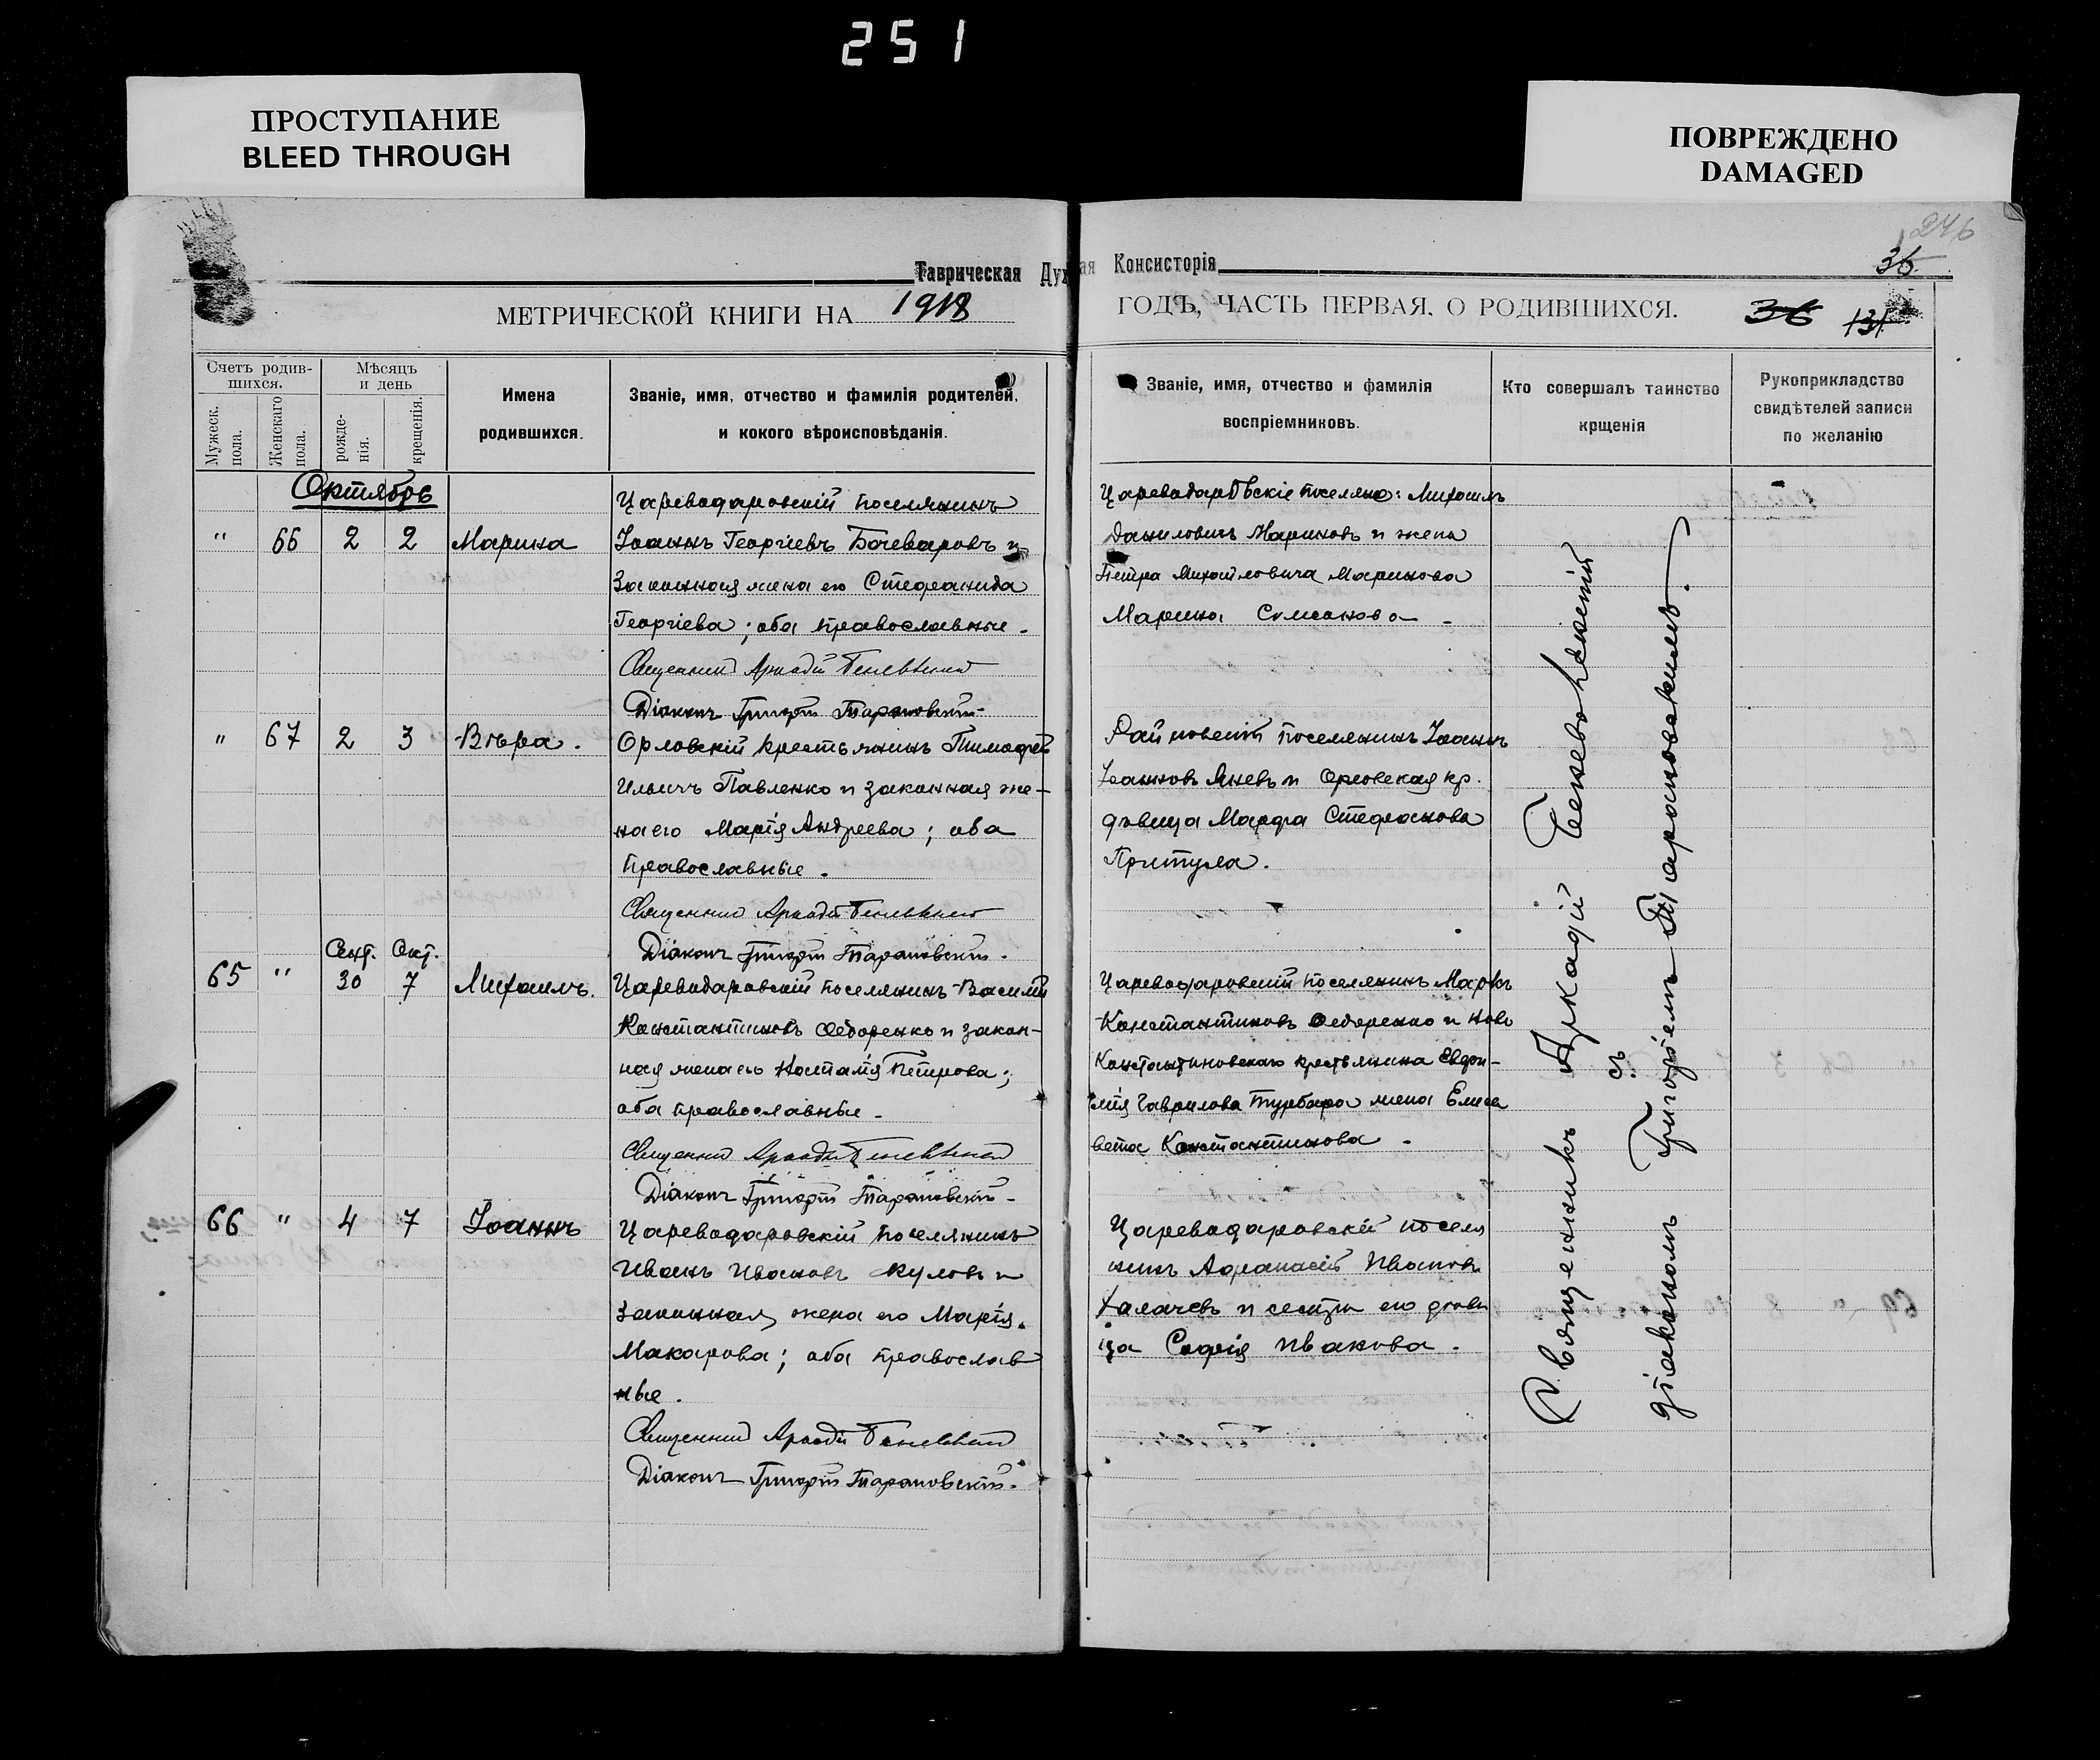 251
ПРОСТУПАНИЕ
BLEED THROUGH
ПОВРЕЖДЕНО
DAMAGED
246
Таврическая Дух
ая Консисторія
36
МЕТРИЧЕСКОЙ КНИГИ НА 1918
ГОДЪ, ЧАСТЬ ПЕРВАЯ, О РОДИВШИХСЯ.
36 131
Счетъ родив-
шихся.
Мужеск.
пола.
Женскаго
пола.
Мѣсяцъ
и день
рожде-
нія.
крещенія.
Имена
родившихся.
Званіе, имя, отчество и фамилія родителей,
и кокого вѣроисповѣданія.
Званіе, имя, отчество и фамилія
воспріемниковъ.
Кто совершалъ таинство
крщенія
Рукоприкладство
свидѣтелей записи
по желанію
Октябрь
" 66 2 2 Марина
Цареводаровскій поселянинъ
Іоаннъ Георгіевъ Бочеваровъ и
законная жена его Стефанида
Георгіева; оба православные.
Священникъ Аркадій
Діаконъ Григорій Тарановскій.
Цареводаровскіе поселяне: Михаилъ
Даниловичъ Мариновъ и жена
Петра Михайловича Маринова
Марина Симеонова
" 67 2 3 Вѣра.
Орловскій крестьянинъ Тимофей
Ильичъ Павленко и законная же-
на его Марія Андреева; оба
православные.
Священникъ Аркадій
Діаконъ Григорій Тарановскій.
Райновскій поселянинъ Іоаннъ
Іоанновъ Яневъ и Орловская кр.
дѣвица Марфа Стефанова
Притула.
Сент. Окт.
65 " 30 7 Михаилъ.
Цареводаровскій поселянинъ Василій
Константиновъ Ѳедоренко и закон-
ная жена его Наталія Петрова;
оба православные.
Священникъ Аркадій
Діаконъ Григорій Тарановскій.
Цареводаровскій поселянинъ Маркъ
Константиновъ Ѳедоренко и Ново
Константиновскаго крестьянина Евфи-
мія Гаврилова Турбара жена Елиса
вета Константинова.
66 " 4 7 Іоаннъ
Цареводаровскій поселянинъ
Иванъ Ивановъ и
законная жена его Марія
Макарова; оба православ
ные.
Священникъ Аркадій
Діаконъ Григорій Тарановскій.
Цареводаровскій поселя
нинъ Афанасій Ивановъ
Халачевъ и сестра его дѣви
ца Софія Иванова.
Священникъ Аркадій
съ
діакономъ Григоріемъ Тарановскимъ.